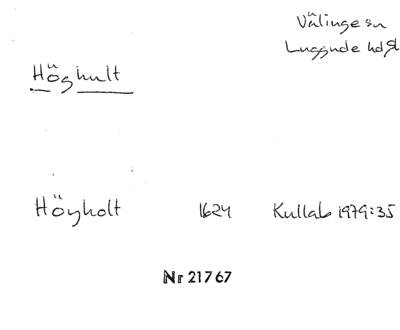 Välinge sn
Luggude hd SL
Höghult
Höyholt 1624 Kullab 1979:35
Nr 21767